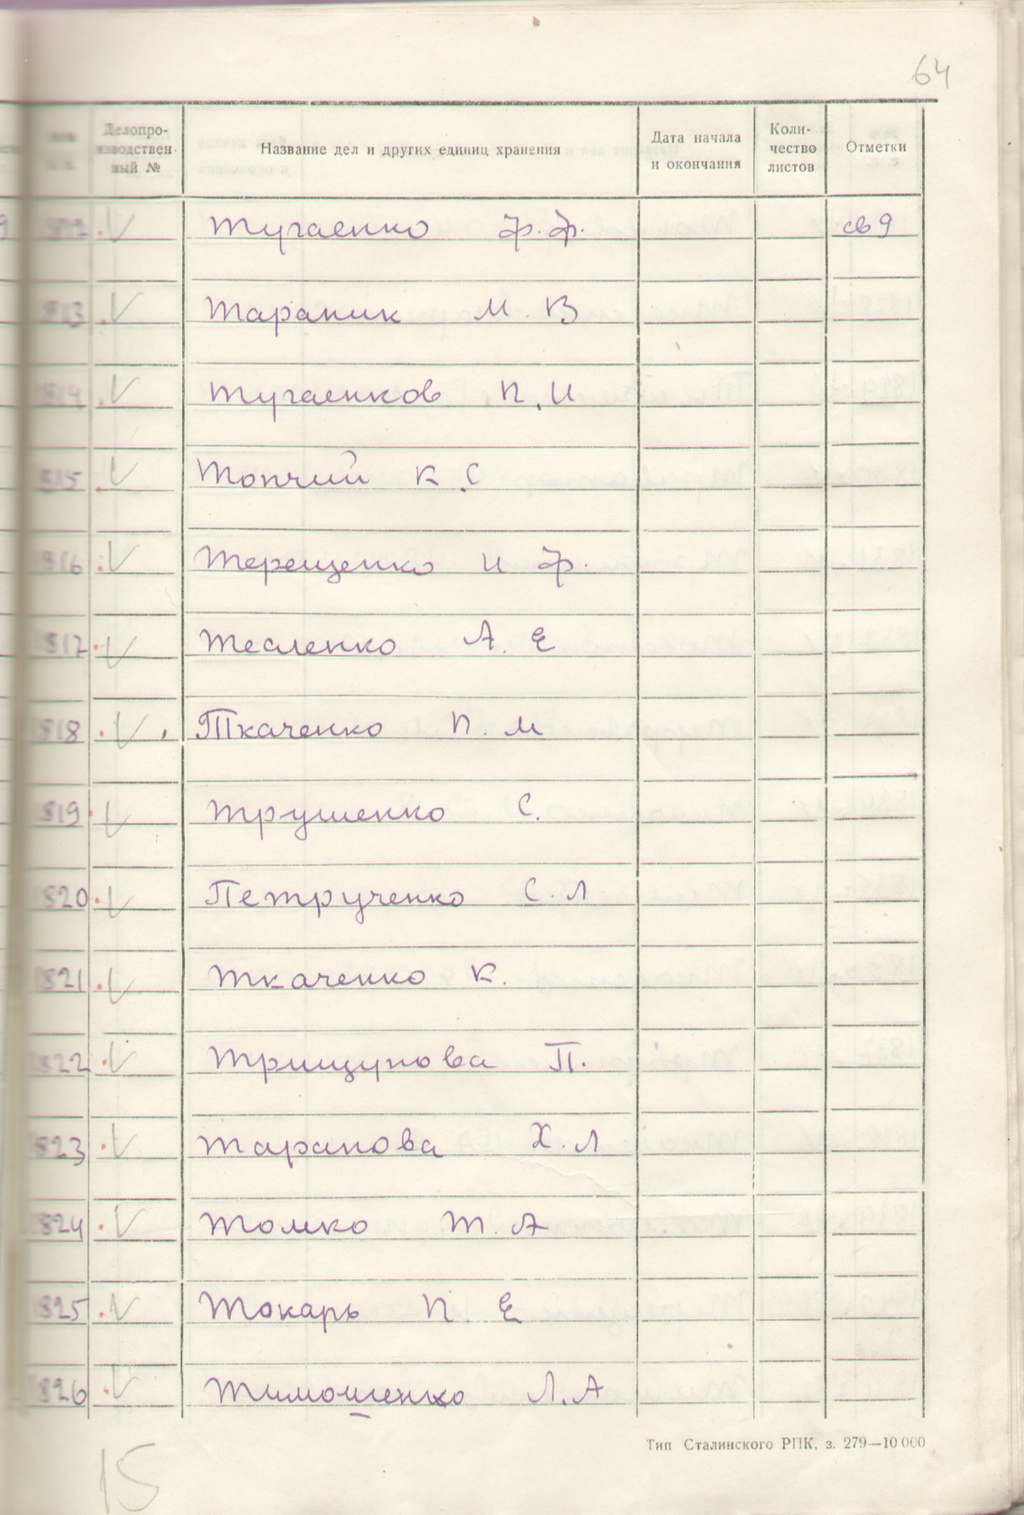 64
Делопро-
изводствен-
ный №
Название дел и других единиц хранения
Дата начала
и окончания
Коли-
чество
листов
Отметки
1812 Тугаенко Ф.Ф. св 9
1813 Тараник М. В
1814 Тугаенков П. И
1815 Топчий К. С
1816 Терещенко И Ф.
1817 Тесленко А. Е
1818 Ткаченко П. М
1819 Трушенко С.
1820 Петрученко С. Л
1821 Ткаченко К.
1822 Трищунова П.
1823 Таранова Х. Л
1824 Томко Т. А
1825 Токарь П Е
1826 Тимошенко Л. А
Тип Сталинского РПК, з. 279—10 000
15